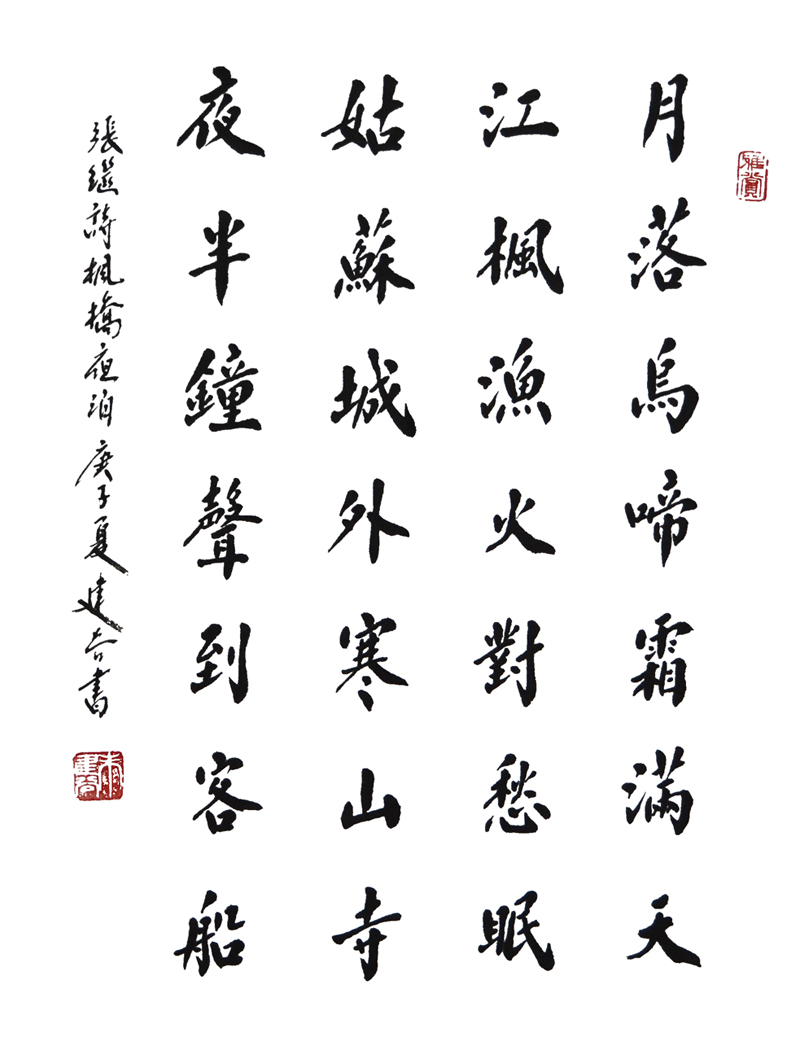 雅賞
月落烏啼霜滿天
江楓漁火對愁眠
姑蘇城外寒山寺
夜半鐘聲到客船
張繼詩楓橋夜泊庚子夏建書